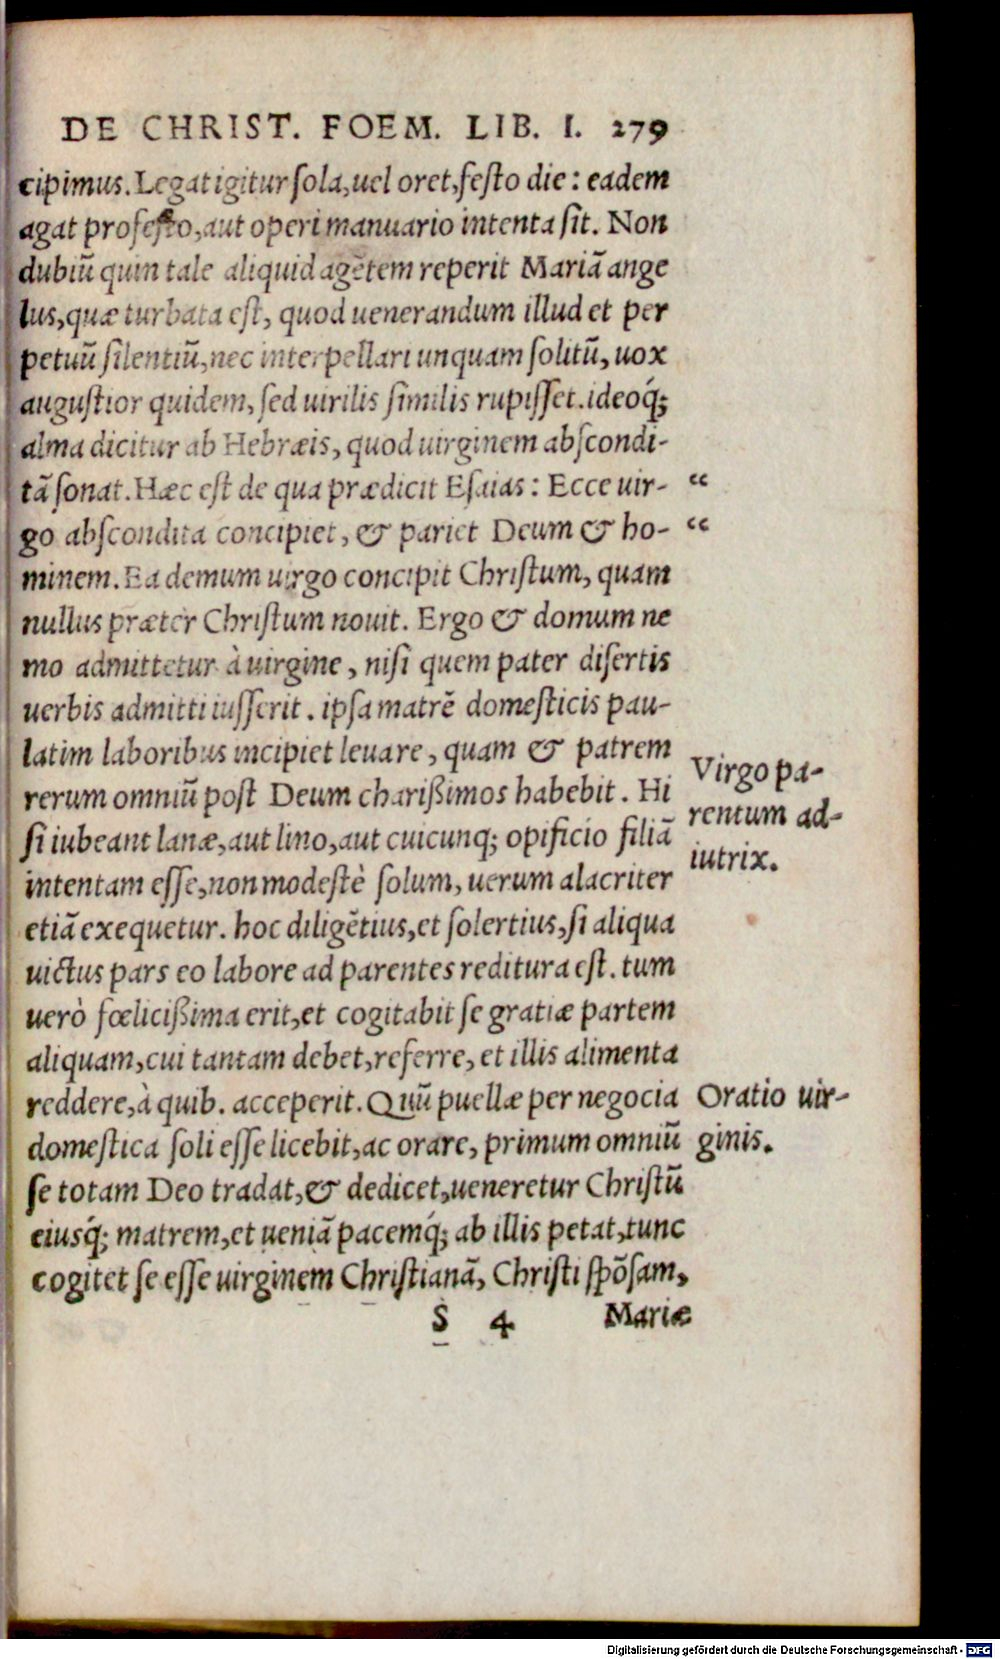 DE CHRIST. FOEM. LIB. I. 279
cipimus. Legat igitur ſola, uel oret, feſto die: eadem
agat profeſto, aut operi manuario intenta ſit. Non
dubiũ quin tale aliquid agẽtem reperit Mariã ange
lus, quæ turbata eſt, quod uenerandum illud et per
petuũ ſilentiũ, nec interpellari unquam ſolitũ, uox
auguſtior quidem, ſed uirilis ſimilis rupiſſet. ideoq́;
alma dicitur ab Hebræis, quod uirginem abſcondi-
tã ſonat. Hæc eſt de qua prædicit Eſaias: Ecce uir- “
go abſcondita concipiet, & pariet Deum & ho- “
minem. Ea demum uirgo concipit Chriſtum, quam
nullus præter Chriſtum nouit. Ergo & domum ne
mo admittetur à uirgine, niſi quem pater diſertis
uerbis admitti iuſſerit. ipſa matrẽ domeſticis pau-
latim laboribus incipiet leuare, quam & patrem
rerum omniũ poſt Deum charißimos habebit. Hi
ſi iubeant lanæ, aut lino, aut cuicunq; opificio filiã
intentam eſſe, non modeſtè ſolum, uerum alacriter
etiã exequetur. hoc diligẽtius, et ſolertius, ſi aliqua
uictus pars eo labore ad parentes reditura eſt. tum
uerò fœlicißima erit, et cogitabit ſe gratiæ partem
aliquam, cui tantam debet, referre, et illis alimenta
reddere, à quib. acceperit. Quũ puellæ per negocia
domeſtica ſoli eſſe licebit, ac orare, primum omniũ
ſe totam Deo tradat, & dedicet, ueneretur Chriſtũ
eiusq́; matrem, et ueniã pacemq́; ab illis petat, tunc
cogitet ſe eſſe uirginem Chriſtianã, Chriſti ſpõſam,
S 4 Mariæ
Virgo pa-
rentum ad-
iutrix.
Oratio uir-
ginis.
Digitalisierung gefördert durch die Deutsche Forschungsgemeinschaft - DFG